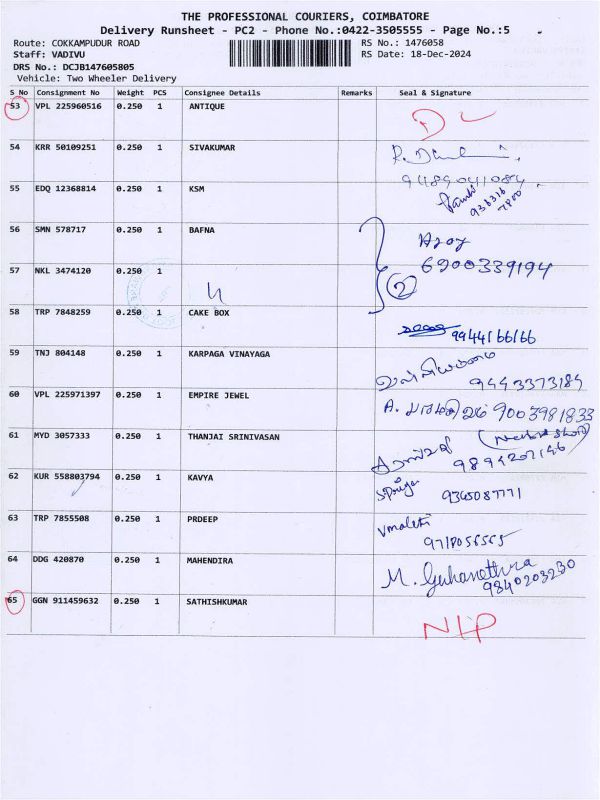 THE PROFESSIONAL COURIERS, COIMBATORE
Delivery Runsheet - PC2 - Phone No.:0422-3505555 - Page No.:5
Route: COKKAMPUDUR ROAD RS No.: 1476058
Staff: VADIVU RS Date: 18-Dec-2024
DRS No.: DCJB147605805
Vehicle: Two Wheeler Delivery
S No Consignment No Weight PCS Consignee Details Remarks Seal & Signature
53 VPL 225960516 0.250 1 ANTIQUE
54 KRR 50109251 0.250 1 SIVAKUMAR
9489041084
55 EDQ 12368814 0.250 1 KSM
936316
7800
56 SMN 578717 0.250 1 BAFNA Ajay
57 NKL 3474120 0.250 1 2 6900339194
58 TRP 7848259 0.250 1 CAKE BOX
9944166166
59 TNJ 804148 0.250 1 KARPAGA VINAYAGA
9443373184
60 VPL 225971397 0.250 1 EMPIRE JEWEL A. 9003981833
61 MYD 3057333 0.250 1 THANJAI SRINIVASAN
9894207146
62 KUR 558803794 0.250 1 KAVYA
9365087771
63 TRP 7855508 0.250 1 PRDEEP
9718056565
64 DDG 420870 0.250 1 MAHENDIRA M.
9840203230
65 GGN 911459632 0.250 1 SATHISHKUMAR
NIP